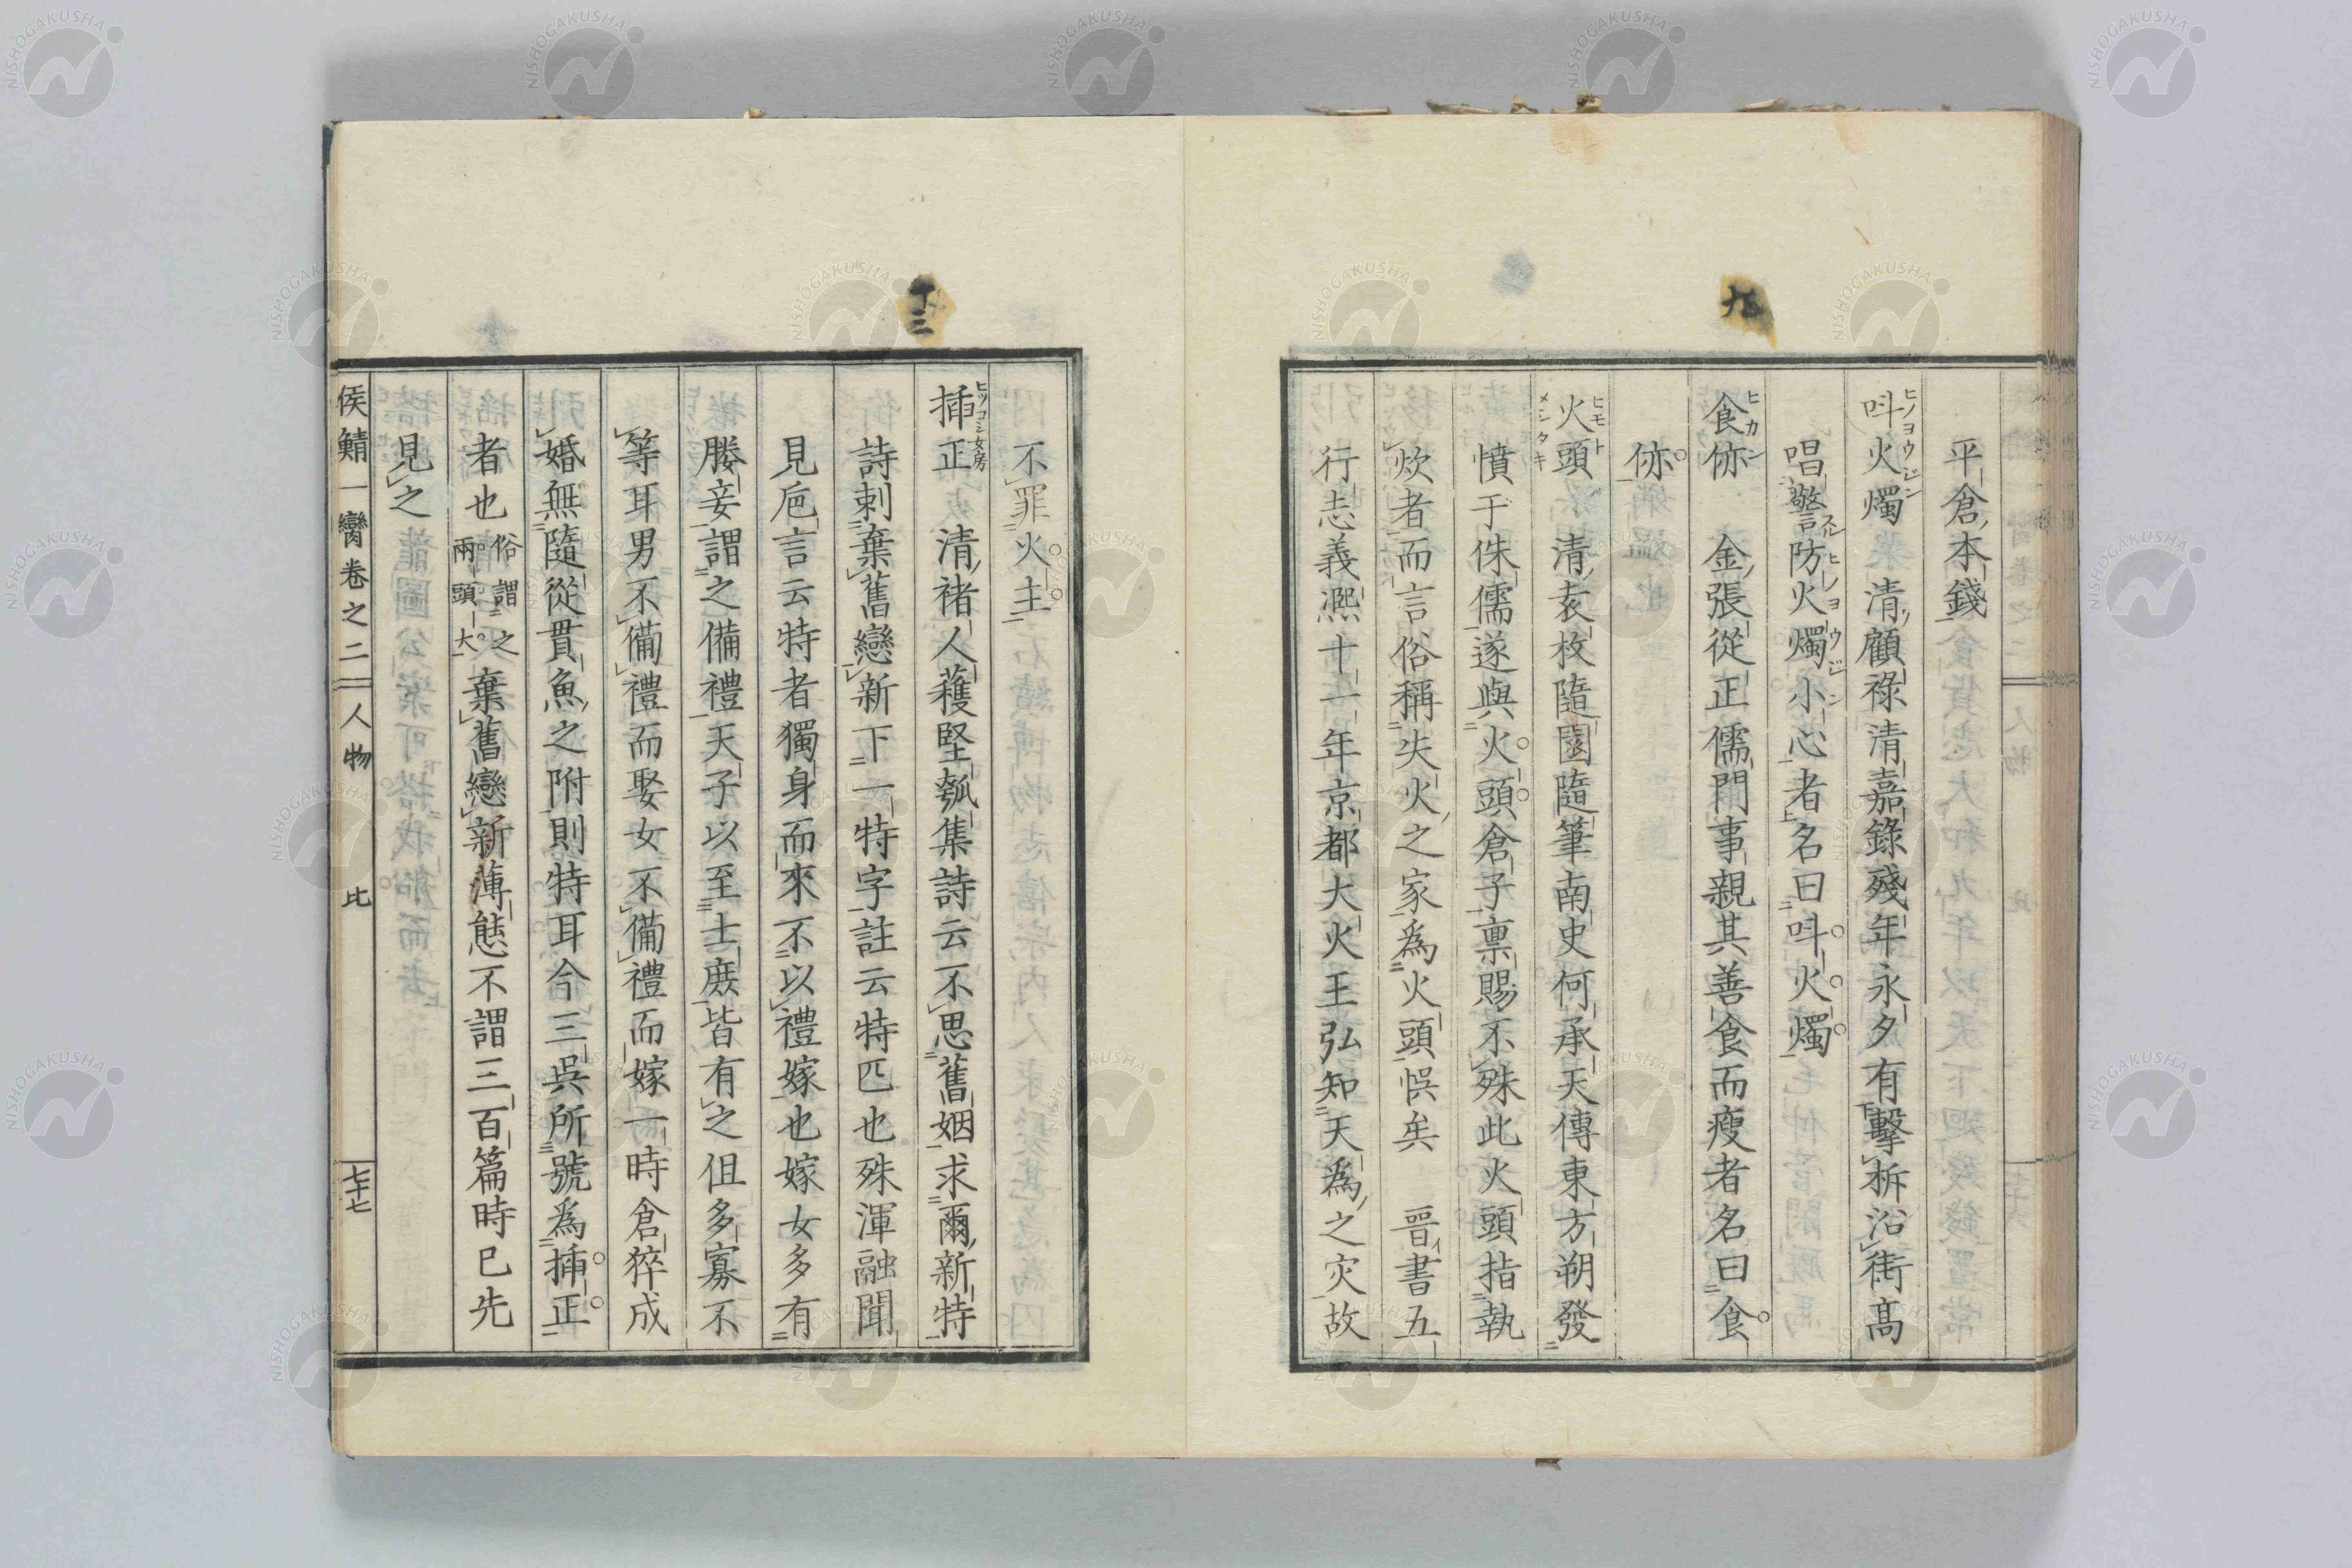 平倉本錢
呌火燭　清顧祿清嘉錄殘年永夕有擊柝沿街高
ヒノヨウジン
唱警防火燭小心者名曰呌火燭
ヒノヨウジン
食㑊　金張從正儒門事親其善食而瘦者名曰食
ヒカン
㑊
火頭　清袁枚隨園隨筆南史何承天傳東方朔發
ヒモト
メシタキ
憤于侏儒遂與火頭倉子稟賜不殊此火頭指執
炊者而言俗稱失火之家為火頭悞矣　晉書五
行志義熈十一年京都大火王弘知天為之灾故
九
十三
不罪火主
揷正　清褚人穫堅瓠集詩云不思舊姻求爾新特
ヒツコシ女房
詩刺棄舊戀新下一特字註云特匹也殊渾融聞
見巵言云特者獨身而來不以禮嫁也嫁女多有
媵妾謂之備禮天子以至士庻皆有之但多寡不
等耳男不備禮而娶女不備禮而嫁一時倉猝成
婚無隨從貫魚之附則特耳今三吳所號為揷正
者也俗謂之兩頭大棄舊戀新薄態不謂三百篇時已先
見之
侯鯖一臠卷之二　人物　比　七十七